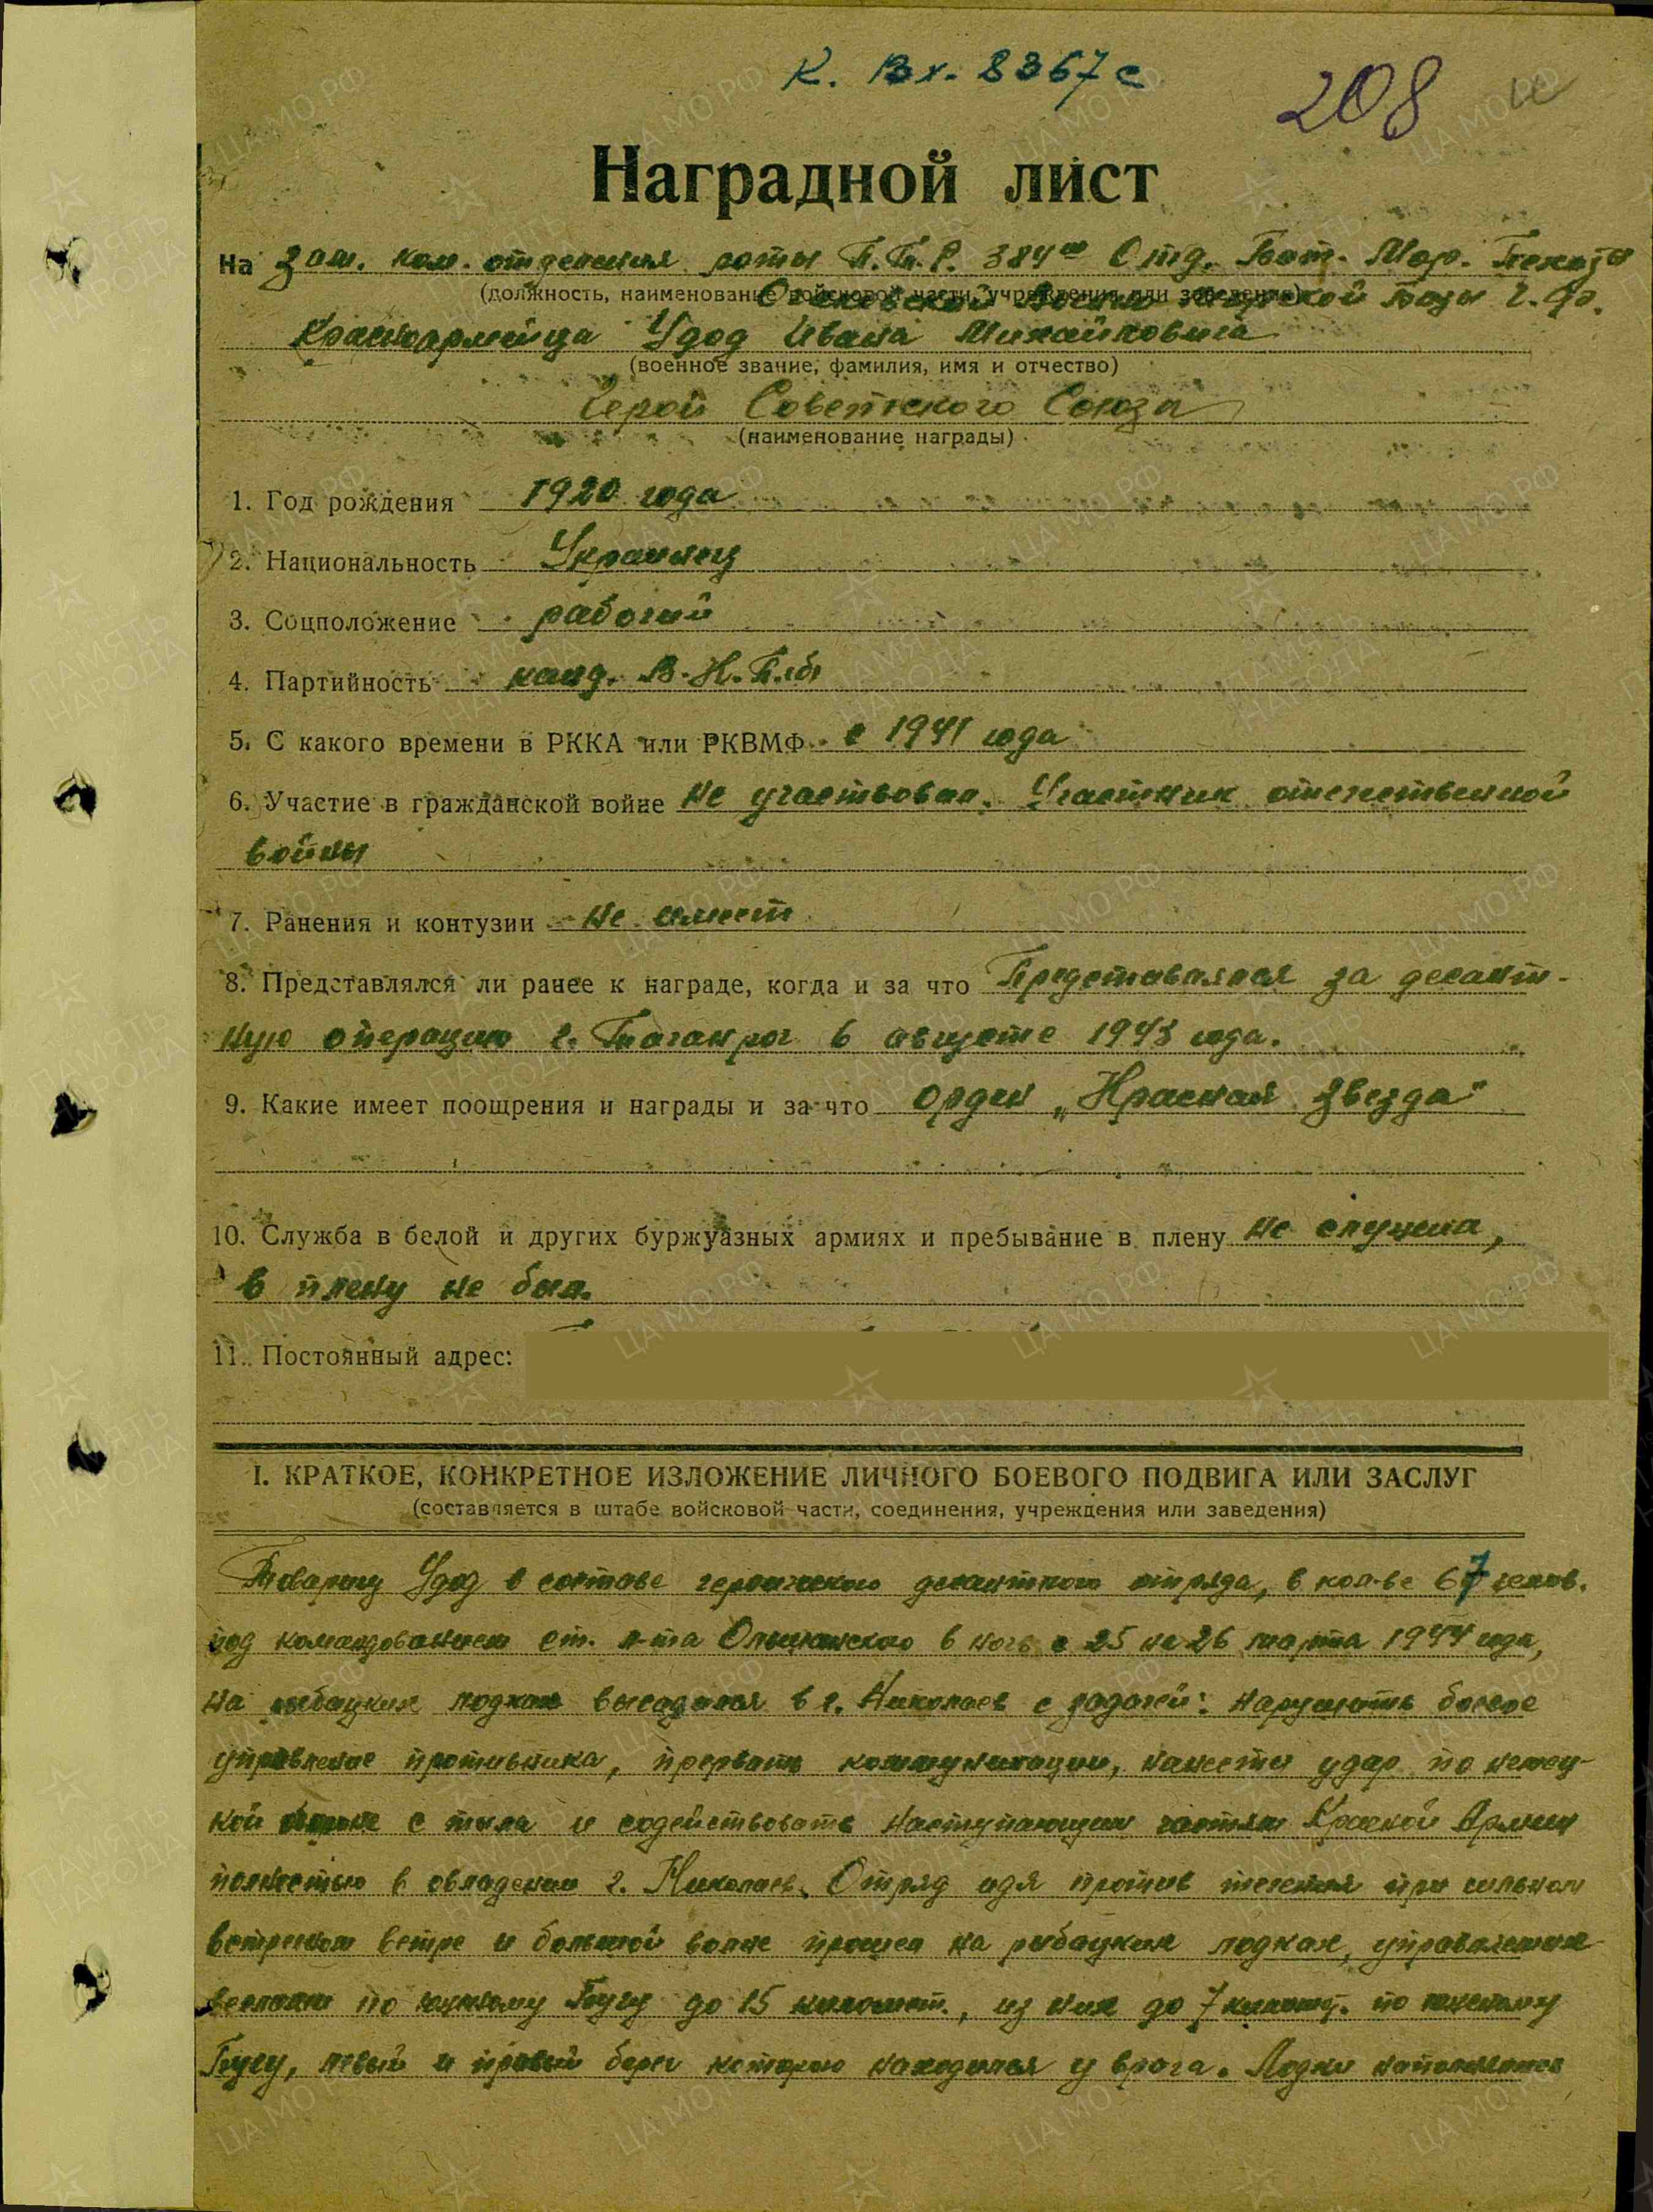 К. Вх. 8367с
208
Наградной лист
На зам. ком. отделения роты П.Т.Р. 384го Отд. Бат. Мор. Пехоты
(должность, наименование войсковой части, учреждения или заведения)
морской Базы Ч.Ф.
Красноармейца Удод Ивана Михайловича
(военное звание, фамилия, имя и отчество)
Герой Советского Союза
(наименование награды)
1. Год рождения 1920 года
2. Национальность Украинец
3. Соцположение рабочий
4. Партийность канд. В.К.П.(б)
5. С какого времени в РККА или РКВМФ с 1941 года
6. Участие в гражданской войне Не участвовал. Участник отечественной
войны
7. Ранения и контузии не имеет
8. Представлялся ли ранее к награде, когда и за что Представлялся за десант-
ную операцию г. Таганрог в августе 1943 года.
9. Какие имеет поощрения и награды и за что орден „Красная Звезда"
10. Служба в белой и других буржуазных армиях и пребывание в плену не служил,
в плену не был.
11. Постоянный адрес:
I. КРАТКОЕ, КОНКРЕТНОЕ ИЗЛОЖЕНИЕ ЛИЧНОГО БОЕВОГО ПОДВИГА ИЛИ ЗАСЛУГ
(составляется в штабе войсковой части, соединения, учреждения или заведения)
Товарищ Удод в составе героического десантного отряда, в кол-ве 67 челов.
под командованием ст. л-та Ольшанского в ночь с 25 на 26 марта 1944 года,
на рыбацких лодках высадился в г. Николаев с задачей: нарушить боевое
управление противника, прервать коммуникации, нанести удар по немец-
кой обороне с тыла и содействовать наступающим частям Красной Армии
полностью в овладении г. Николаев. Отряд идя против течения при сильном
встречном ветре и большой волне прошел на рыбацких лодках, управляемых
веслами по южному Бугу до 15 километ., из них до 7 километ. по южному
Бугу, левый и правый берег которого находился у врага. Лодки наполнялись